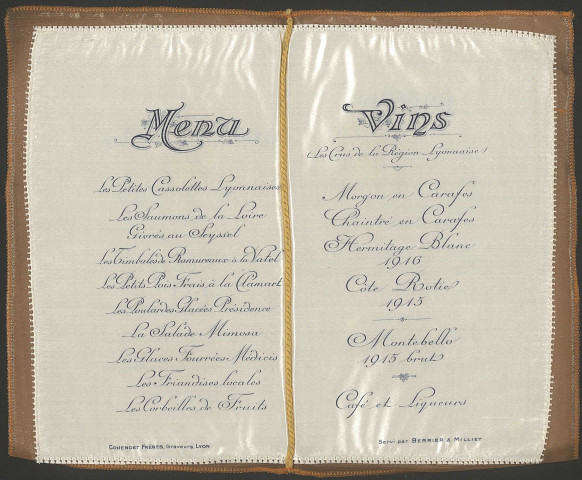 Menu
Les Petites Cassolettes Lyonnaises
Les Saumons de la Loire
Givrés au Seyssel
Les Timbales de Ramureaux à la Vatel
Les Petits Pois Frais à la Clamart
Les Poulardes Glacées Présidence
La Salade Mimosa
Les Glaces Fourrées Médicis
Les Friandises locales
Les Corbeilles de Fruits
Cohendet Frères, Graveurs, Lyon
Vins
(Les Crus de la Région Lyonnaise)
Morgon en Carafes
Chaintré en Carafes
Hermitage Blanc
1916
Côte Rotie
1915
Montebello
1915 brut
Café et Liqueurs
Servi par Berrier & Milliet